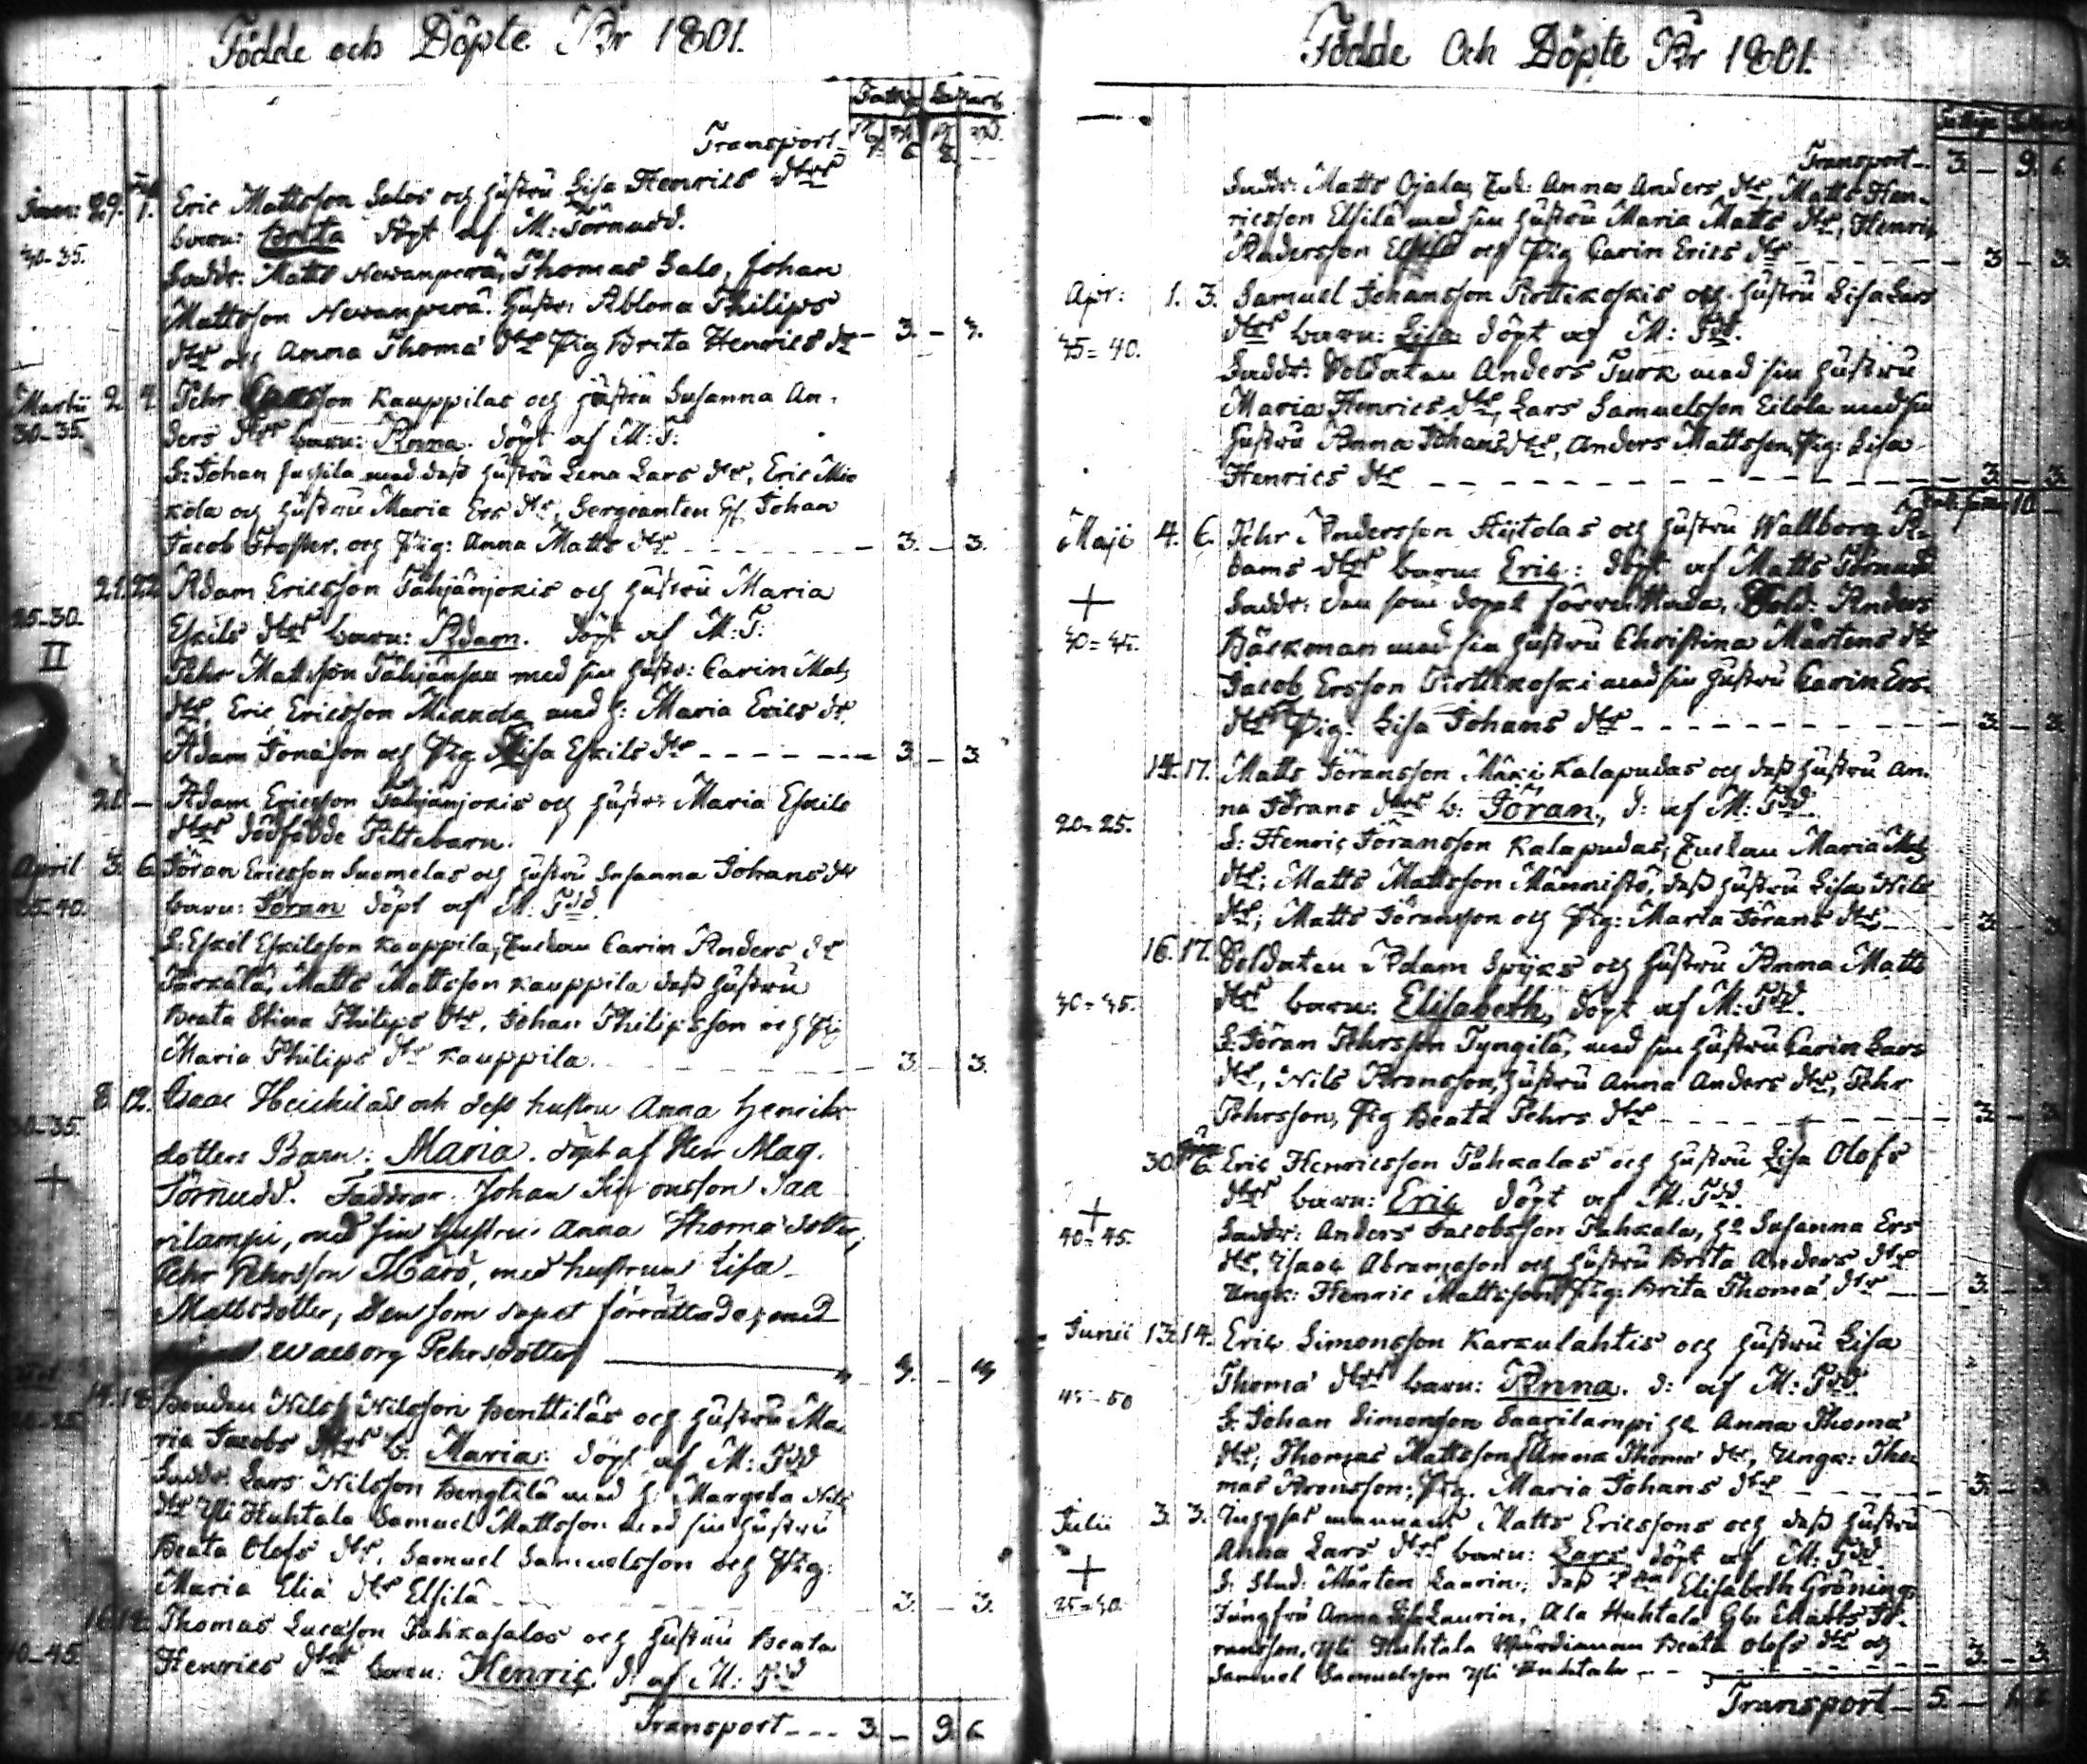 Födde och Döpte År 1801.
Transport
Janu: 29. 1. Eric Mattsson Salos och hustru Lisa Henrics dtrs
barn: Brita döpt af M: Törnudd.
30-35. Faddr: Matts Nevanperä, Thomas Salo, Johan
Mattsson Nevanperä. Hustr: Ablona Philips
dtr och Anna Thomæ dtr Pig Brita Henrics dr - 3. - 3.
Martii 2. 4. Pehr Larsson Kauppilas och hustru Susanna An-
30-35. ders dtrs barn: Anna. döpt af M: T:
F: Johan Jussila med dess hustru Lena Lars dtr, Eric Mic
kola och hustru Maria Ers dtr, Sergeanten Johan
Jacob och Pig: Anna Matts dtr - 3. - 3.
21. 22. Adam Ericsson Tähjänjokis och hustru Maria
25-30. Eskils dtrs barn: Adam. döpt af M: T:
II Pehr Mattsson Tähjänsuu med sin hustr: Carin Mats
dtr, Eric Ericsson Mickola med h: Maria Erics dr
Adam Jonasson och Pig Lisa Eskils dtr - 3. - 3.
21. - Adam Ericsson Tähjänjokis och hustr: Maria Eskils
dtrs dödfödde Piltebarn.
April 3. 6. Jöran Ericsson Suomelas och hustru Susanna Johans dr
35-40. barn: Jöran döpt af M: Tdd.
F: Eskil Eskilsson Kauppila, Enkan Carin Anders dr
Matts Mattsson Kauppila dess hustru
Beata Stina Philips dtr, Johan Philipsson och Pig
Maria Philips dtr Kauppila. - 3. - 3.
8. 12. Isaac Heickiläs och dess hustru Anna Henriks
30-35. dotters Barn: Maria. döpt af Herr Mag.
+ Törnudd. Faddrar. Johan Simonsson Saa
rilampi, med sin hustru Anna Thomædotter,
Pehr Pehrsson med hustrun Lisa
Mattsdotter, Den som dopet förrättade, med
Walborg Pehrsdotter
14. 18. Bonden Nils Nilsson Penttiläs och hustru Ma
ria Jacobs dtrs b: Maria: döpt af M: Tdd
Faddr: Lars Nilsson Pengtilä med h: Margeta Nils
dtr Yli Huhtala Samuel Mattsson med sin hustru
Beata Olofs dtr, Samuel Samuelsson och Pig:
Maria Eliæ dtr Elsilä - 3. - 3.
40-45. Thomas Lucasson Pahkasalos och hustru Beata
Henrics dtrs barn: Henric. d: af M: Tdd
Transport - - - 3. - 9. 6
Födde Och Döpte År 1801.
Transport - 3. - 9. 6.
Faddr: Matts Ojala, Enk: Anna Anders dtr, Matts Hen-
ricsson Elsilä med sin hustru Maria Matts dtr, Henric
Andersson Elsilä och Pig Carin Erics dtr - 3 - 3.
Apr: 1. 3. Samuel Johansson Pirttikoskis och hustru Lisa Lars
35=40. dtrs barn: Lisa döpt af M: Tdd.
Faddr: Soldaten Anders Turk med sin hustru
Maria Henrics dtr, Lars Samuelsson Eilola med sin
hustru Anna Johans dtr, Anders Mattsson, Pig: Lisa
Henrics dtr - 3. - 3.
Maji 4. 6. Pehr Andersson Hyitolas och hustru Wallborg A-
dams dtrs barn: Eric: döpt af Matts Törnudd
+ Faddr: den som dopet förrättade, Sold: Anders
40=45. Bäckman med sin hustru Christina Mårtens dtr
Jacob Ersson Pirttikoski med sin hustru Carin Ers-
dtr Pig: Lisa Johans dtr - 3. - 3.
14. 17. Matts Jöransson Mäki Kalapudas och dess hustru An-
20=25. na Jörans dtrs b: Jöran, d: af M: Tdd.
F: Henric Jöransson Kalapudas, Enckan Maria Mats
dtr; Matts Mattsson Männistö, dess hustru Lisa Nils
dtr; Matts Jöransson och Pig: Maria Jörans dtr - 3. - 3.
16. 17. Soldaten Adam Spijks och hustru Anna Matts
40=45. dtrs barn: Elisabeth, döpt af M: Tdd.
F: Jöran Pehrsson Tyngilä, med sin hustru Carin Lars
dtr, Nils Aronsson, hustru Anna Anders dtr, Pehr
Pehrsson, Pig Beata Pehrs dtr - 3. - 3.
30. 6. Eric Henricsson Pahkalas och hustru Lisa Olofs
+ dtrs barn: Eric döpt af M: Tdd.
40=45. Faddr: Anders Jacobsson Pahkala, h2 Susanna Ers
dtr, Isaac Abramsson och hustru Brita Anders dtr
Ungk: Henric Mattsson, Pig: Brita Thomæ dtr - 3. - 3.
Junii 13. 14. Eric Simonsson Karsulahtis och hustru Lisa
45-50 Thomæ dtrs barn: Anna. d: af M: Tdd.
F: Johan Simonsson Saarilampi h2 Anna Thomæ
dtr; Thomas Mattsson, Anna Thomæ dtr, Ungk: Tho-
mas Aronsson; Pig. Maria Johans dtr - 3. - 3.
Julii 3. 3. Matts Ericssons och dess hustru
+ Anna Lars dtrs barn: Lars döpt af M: Tdd.
25=30. F: Stud: Mårten Laurin; Elisabeth Gröning,
Jungfru Anna Lisa Laurin, Ala Huhtala Matts Jö-
ransson, Yli Huhtala Wärdinnan Beata Olofs dtr och
Samuel Samuelsson Yli Huhtala - 3. - 3.
Transport - 5. -